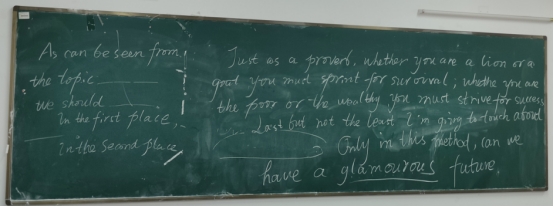 As can be seen from
the topic
we should
In the first place,
In the second place
Just as a proverb, whether you are a lion or a
goat you must sprint for survival; whethe you are
the poor or the wealthy you must strive for success
Last but not the least I'm going to touch about
Only in this method, can we
have a glamourous future.